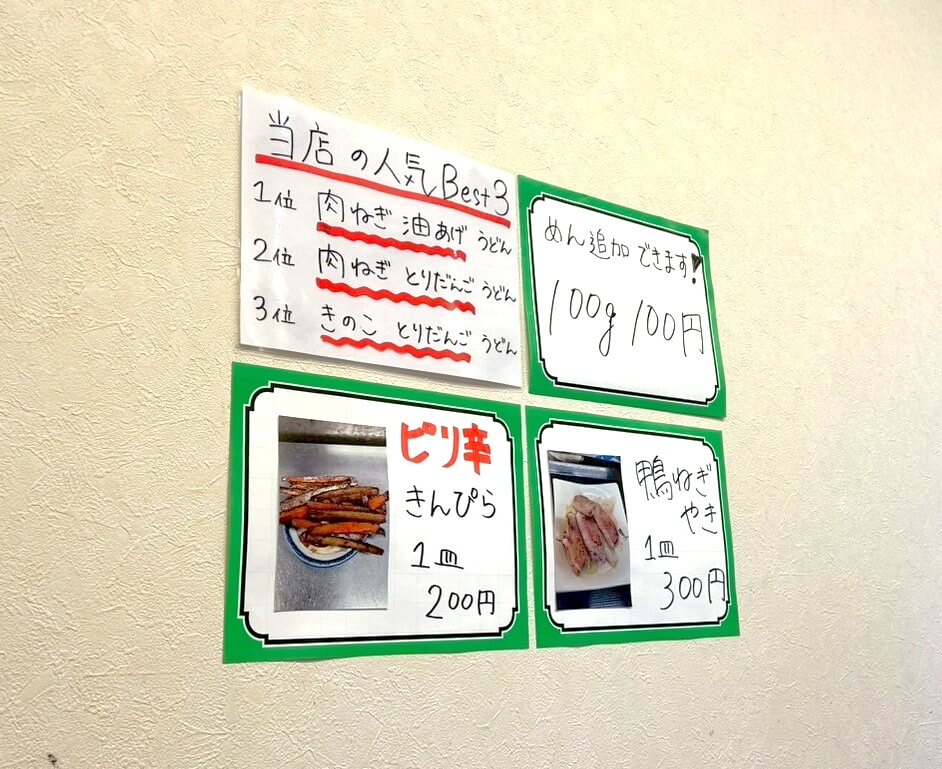 当店の人気Best3
1位 肉ねぎ 油あげ うどん
2位 肉ねぎ とりだんご うどん
3位 きのこ とりだんご うどん
めん追加できます!
100g 100円
ピリ辛
きんぴら
1皿
200円
鴨ねぎ
やき
1皿
300円